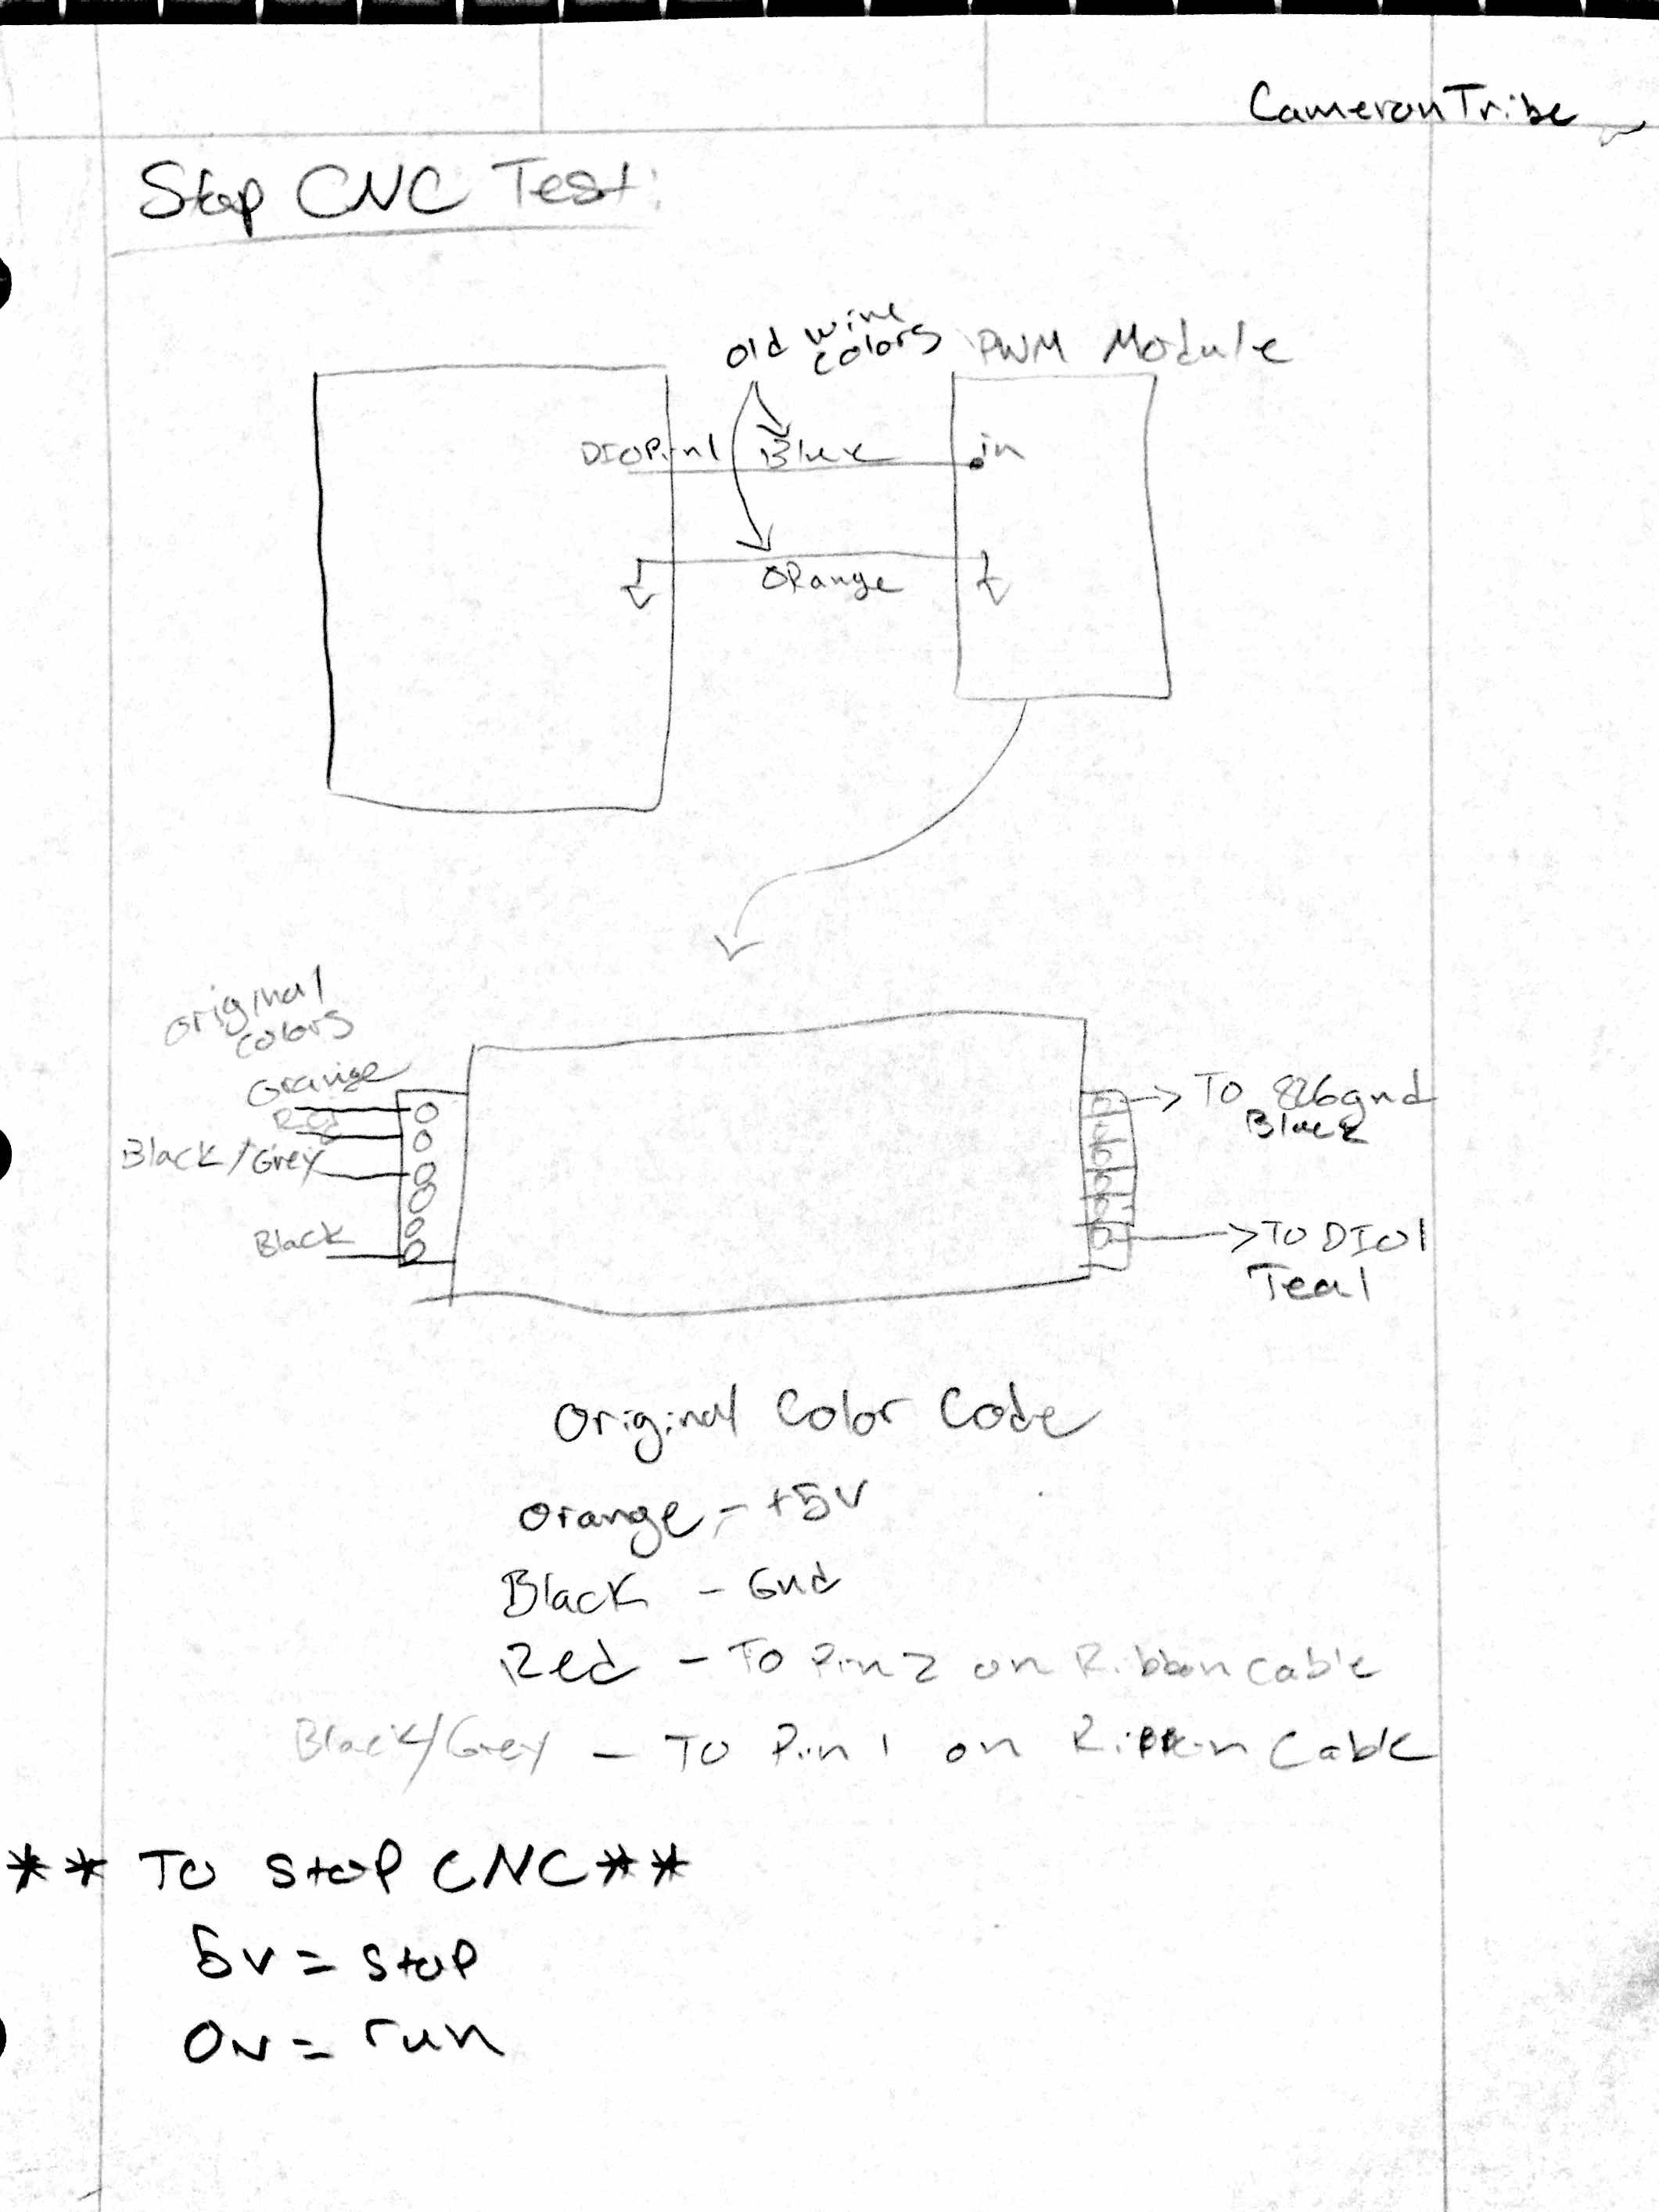 Cameron Tribe
Stop CNC Test:
Old wire
colors
PWM Module
DIO Pin 1
Blue
in
ORange
original
colors
Orange
Red
Black/Grey
Black
To 826gnd
Black
To DIO1
Teal
Original Color Code
Orange - +5V
Black - Gnd
Red - To Pin 2 on Ribbon cable
Black/Grey - To Pin 1 on Ribbon Cable
** To stop CNC **
5v = stop
0v = run